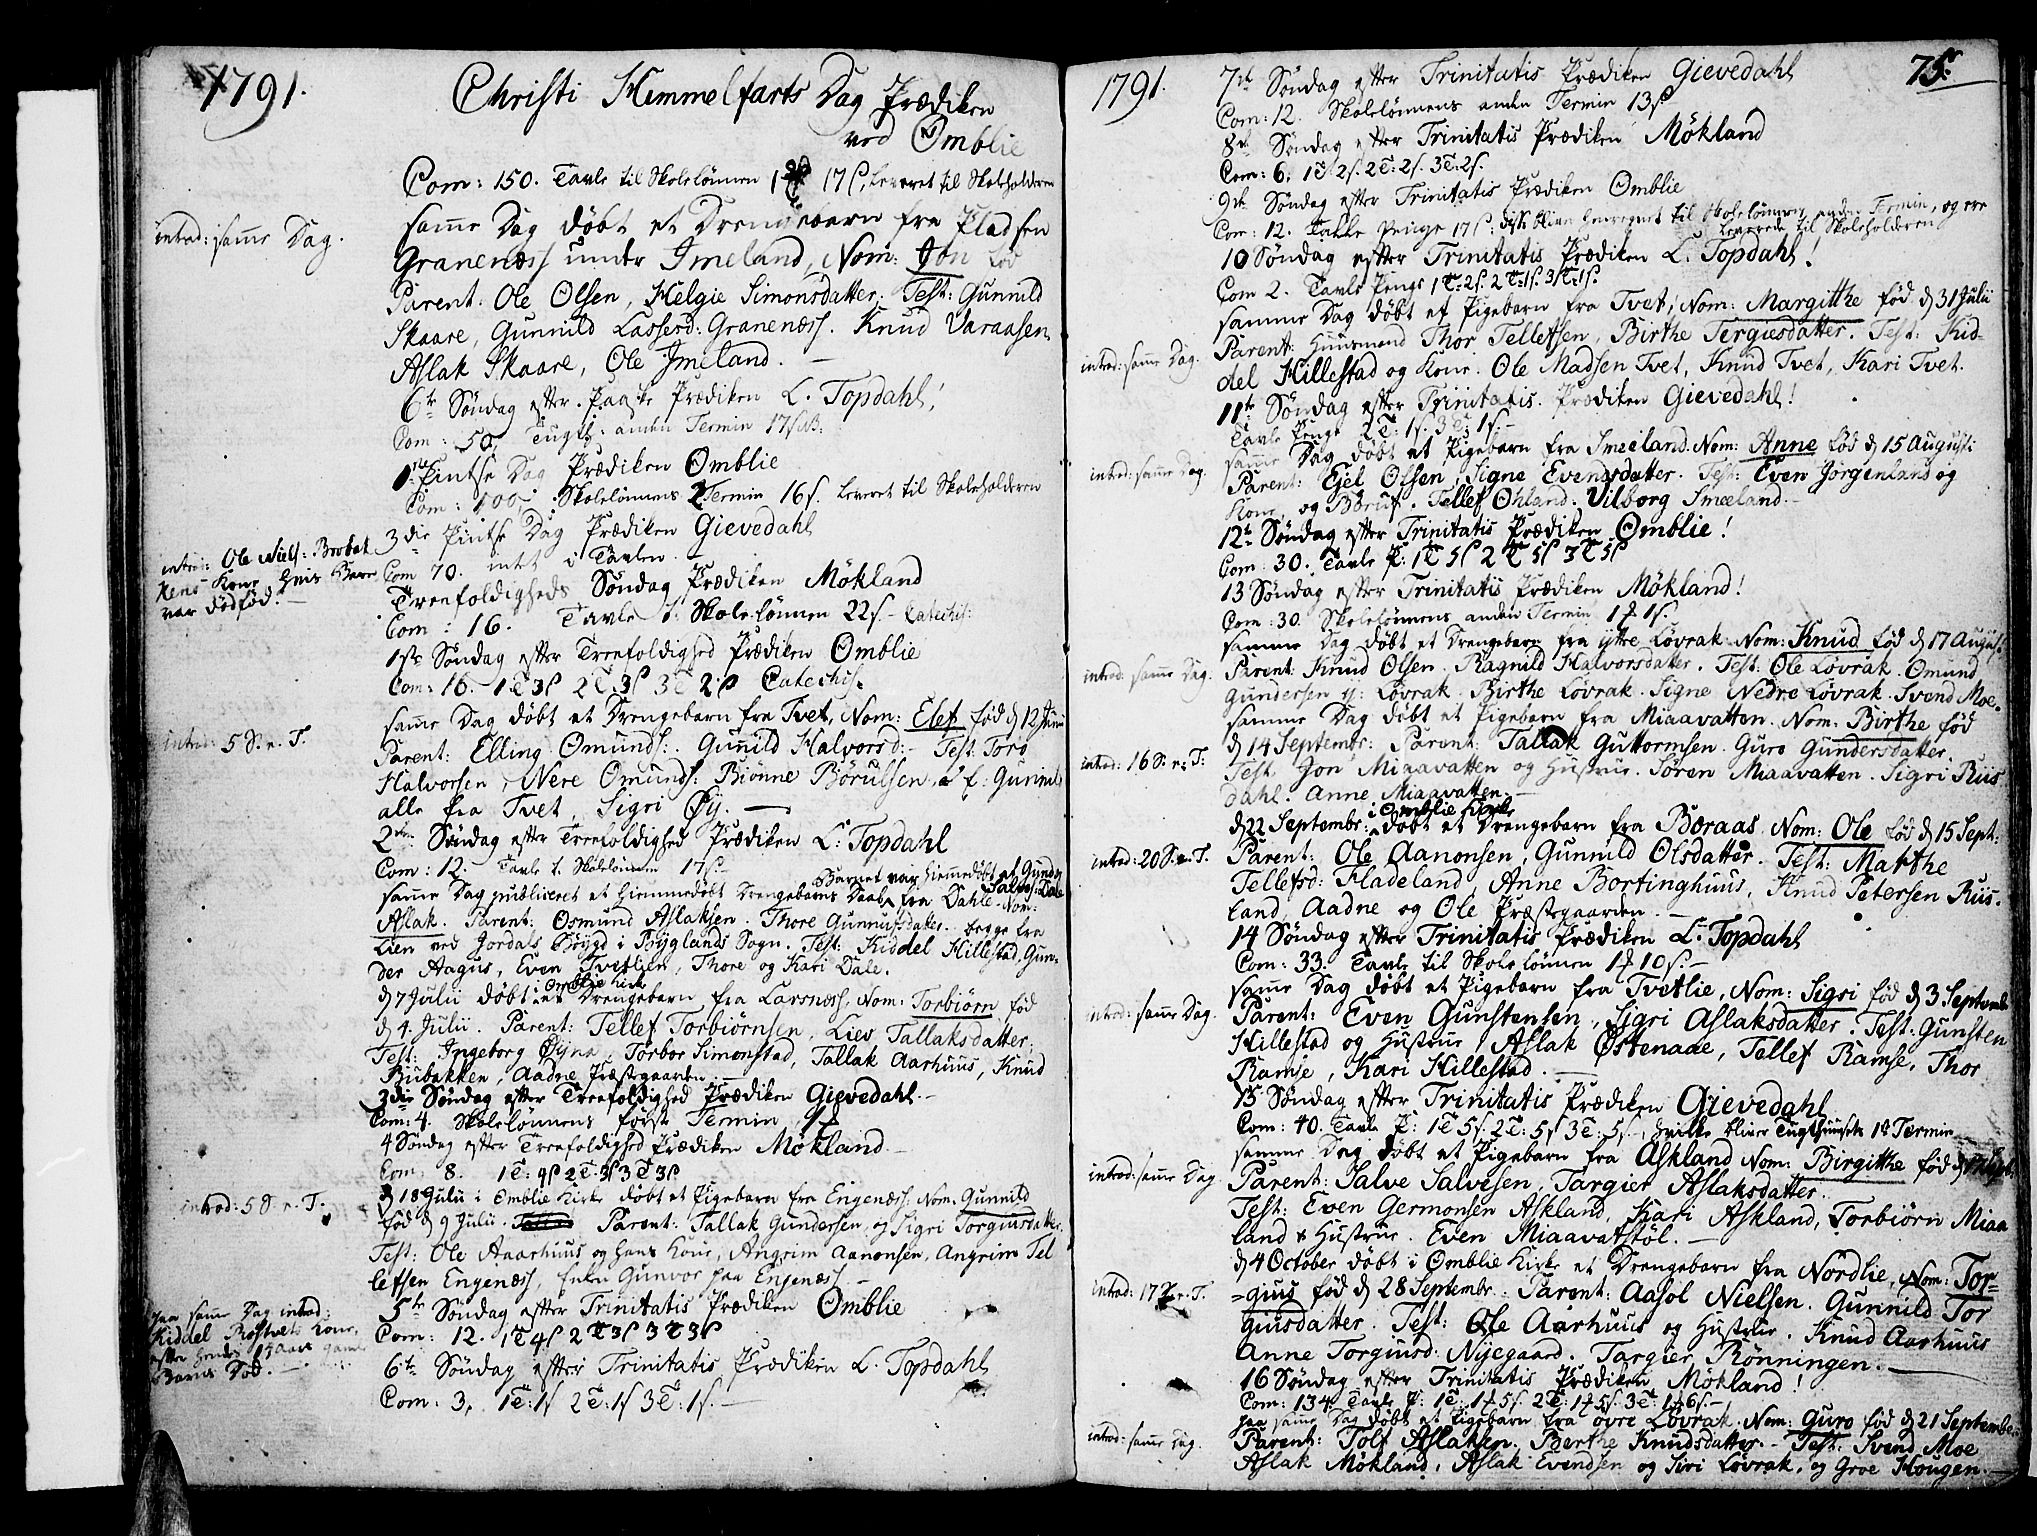 1791.
Christi Himmelfarts Dag Prædiken
ved Omblie
Com: 150. Tavle til Skolelönnen 17 ſ, Leveret til Skoleholderen
introd: samme Dag.
samme Dag döbt et Drengebarn fra Pladsen
Granenæsſ under Jmeland, Nom: Jon föd
Parent: Ole Olsen, Helgie Simonsdatter. Test: Gunnild
Skaare, Gunnild Lassesd: Granenæsſ. Knud Varaasen,
Aslak Skaare, Ole Jmeland.
6te Söndag efter Paaske Prædiken L. Topdahl!
Com: 50. Tugth: anden Termin 17 ſ
1 Pintse Dag Prædiken Omblie
Com: 100, Skolelönnens 2 Termin 16 ſ. Leveret til Skoleholderen
3die Pintse Dag Prædiken Gievedahl
Com 70. intet i Tavlen.
introd: Ole Niels: Brobak
kens Kone hvis Barn
var dödföd.
Treefoldigheds Söndag Prædiken Mökland
Com: 16. Tavle t. Skolelönnen 22 ſ. Catechis:
1ste Söndag efter Treefoldighed Prædiken Omblie
Com: 16. 1 T 3 ſ 2 T. 3 ſ 3 T 2 ſ Catechis:
samme Dag döbt et Drengebarn fra Tvet, Nom: Elef föd d 12 Juni
introd: 5 S. e. T.
Parent: Elling Omunds:. Gunnild Halvorsd:. Test: Tord
Halvorsen, Nere Omunds: Biönne Börulsen, Gunnild
alle fra Tvet, Sigri Öÿ.
2den Söndag efter Treefoldighed Prædiken L: Topdahl
Com: 12. Tavle t. Skolelönnen 17 ſ
Barnet var hiemmedöbt af Gunder
samme Dag publiceret et hiemmedöbt Drengebarns Daab fra Dahle. Nom:
Aslak. Parent: Osmund Aslaksen. Thore Gunnufsdatter. begge fra
Lien ved Jordals Böÿgd i Bÿglands Sogn. Test: Kiddel Hillestad, Gun-
der Aagus, Even Tvetlien, Thore og Kari Dale.
i Omblie Kirke
d 7 Julii döbt et Drengebarn fra Larsnæsſ, Nom: Torbiörn föd
d 4. Julii. Parent: Tellef Torbiörnsen, Lies Tallaksdatter.
Test: Ingeborg Öÿna, Torbor Simonstad, Tallak Aarhuus, Knud
Bubakken, Aadne Præstgaarden.
3die Söndag efter Treefoldighed Prædiken Gievedahl.
Com: 4. Skolelönnens förste Termin
4 Söndag efter Treefoldighed Prædiken Mökland
Com: 8. 1 T: 4 ſ 2 T. 3 ſ 3 T 3 ſ
d 18 Julii i Omblie Kirke döbt et Pigebarn fra Engenæsſ. Nom: Gunnild
introd: 5 S. e. T.
föd d 9 Julii. Parent: Tallak Gundersen og Sigri Torgiusdatter.
Test: Ole Aaarhuus og hans Kone, Angrim Aanonsen, Angrim Tel
lefsen Engenæsſ, Enke Gunvor paa Engenæsſ
5te Söndag efter Trinitatis Prædiken Omblie
paa samme Dag introd:
Kiddel Rostvets Kone,
efter hendes Aars gamle
Barns Död.
Com: 12. 1 T 4 ſ 2 T 3 ſ 3 T 3 ſ
6te Söndag efter Trinitatis Prædiken L. Topdahl
Com: 3. 1 T: 1 ſ 2 T: 1 ſ 3 T: 1 ſ.
1791.
75.
7de Söndag efter Trinitatis Prædiken Gievedahl
Com: 12. Skolelönnens anden Termin 13 ſ
8de Söndag efter Trinitatis Prædiken Mökland
Com: 6. 1 T 2 ſ. 2 T: 2 ſ. 3 T: 2 ſ.
9de Söndag efter Trinitatis Prædiken Omblie
Com: 12. Tavle Penge 17 ſ: disse bliver henregnet til Skolelönnens anden Termin, og ere
Leverede til Skoleholderen
10 Söndag efter Trinitatis Prædiken L. Topdahl!
Com 2. Tavle Penge 1 T: 2 ſ. 2 T: 1 ſ. 3 T: 1 ſ.
samme Dag döbt et Pigebarn fra Tvet, Nom: Margitthe föd d 31 Julii
introd: samme Dag.
Parent: Huusmand Thor Tellefsen, Birthe Tergiesdatter. Test: Kid-
del Hillestad og Kone. Ole Madsen Tvet, Knud Tvet, Kari Tvet.
11te Söndag efter Trinitatis. Prædiken Gievedahl!
Tavle Penge 2 T: 1 ſ. 3 T: 1 ſ.
introd: samme Dag.
samme Dag döbt et Pigebarn fra Smeeland. Nom: Anne föd d 15 Augusti
Parent: Ejel Olsen, Signe Evensdatter. Test: Even Jörgenlans og
Kone, og Böruf. Tellef Ohland. Vilborg Smeeland.
12te Söndag efter Trinitatis Prædiken Omblie!
Com: 30. Tavle P: 1 T 5 ſ 2 T 5 ſ 3 T 5 ſ
13 Söndag efter Trinitatis Prædiken Mökland!
Com: 30. Skolelönnens anden Termin 1 ſ.
samme Dag döbt et Drengebarn fra ÿtre Lövrak Nom: Knud föd d 17 August
introd: samme Dag.
Parent: Knud Olsen. Ragnild Halvorsdatter. Test: Ole Lövrak. Omund
Gundersen y: Lövrak. Birthe Lövrak. Signe Nedre Lövrak. Svend Moe.
samme Dag döbt et Pigebarn fra Miaavatten. Nom: Birthe föd
introd: 16 S. e. T.
d 14 Septembr: Parent: Tallak Guttormsen. Guro Gundersdatter
Test Jon Miaavatten og Hustrue. Sören Miaavatten. Sigri Riis
dahl. Anne Miaavatten.
i Omblie Kirke
d 22 Septembr: döbt et Drengebarn fra Boeraas Nom: Ole föd d 15 Sept:
introd: 20 S. e. T.
Parent: Ole Aanonsen, Gunnild Olsdatter. Test: Marthe
Tellefsd: Fladeland, Anne Bortinghuus, Knud Petersen Riis.
land, Aadne og Ole Præstgaarden.
14 Söndag efter Trinitatis Prædiken L. Topdahl
Com: 33. Tavle til Skolelönnen 10 ſ.
samme Dag döbt et Pigebarn fra Tvetlie, Nom: Sigri föd d 3 Septembr
introd: samme Dag.
Parent: Even Gunstensen, Sigri Aslaksdatter. Test: Gunsten
Hillestad og Hustrue, Aslak Östenaae, Tellef Ramse, Thor
Ramse, Kari Hillestad.
15 Söndag efter Trinitatis Prædiken Gievedahl
Com: 40. Tavle P: 1 T 5 ſ. 2 T: 5 ſ 3 T: 5 ſ. hvilke bliver Tugthuusets 1te Termin
samme Dag döbt et Pigebarn fra Askland Nom: Birgitthe föd d
introd: samme Dag.
Parent: Salve Salvesen, Targier Aslaksdatter.
Test: Even Germonsen Askland, Kari Askland, Torbiörn Miaa
land & Hustrue. Even Miaavatstöl.
d 4 October döbt i Omblie Kirke et Drengebarn fra Nordlie, Nom: Tor-
introd: 17 e. T.
=gius föd d 28 Septembr. Parent: Aasol Nielsen. Gunnild Tor
giusdatter. Test: Ole Aarhuus og Hustrue. Knud Aarhuus
Anne Torgiusd: Nÿegaard. Targier Rönningen.
16 Söndag efter Trinitatis Prædiken Mökland!
Com: 134. Tavle P: 1 T: 5 ſ. 2 T: 5 ſ. 3 T: 6 ſ.
introd: samme Dag.
paa samme Dag döbt et Pigebarn fra övre Lövrak. Nom: Guro föd d 21 Septembe:
Parent: Tolf Aslaksen. Berthe Knudsdatter. Test: Svend Moe
Aslak Mökland, Aslak Evendsen og Siri Lövrak, og Groe Hougen.